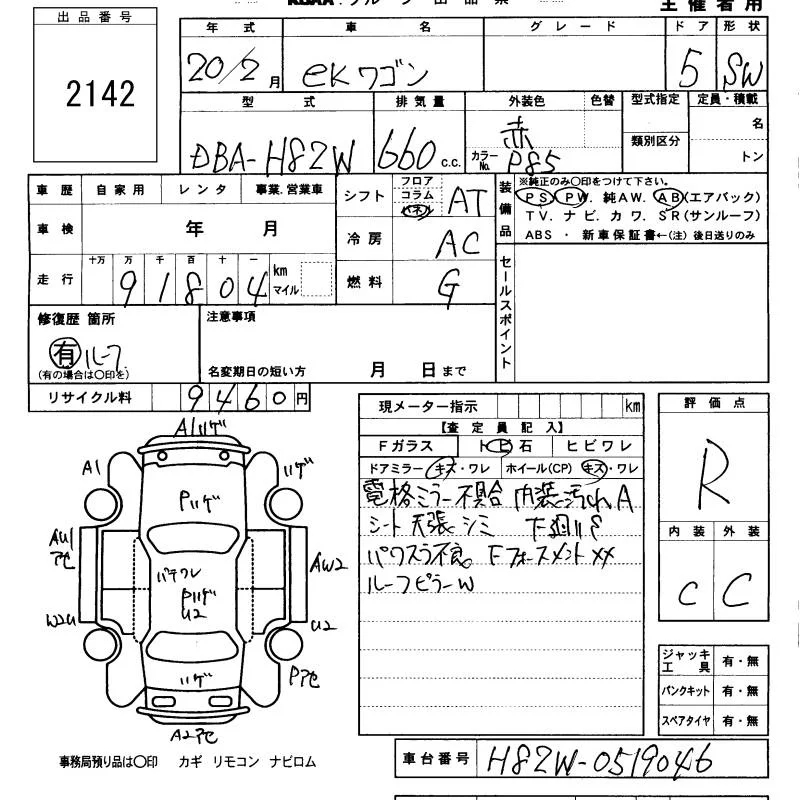 出品番号
2142
主催者用
年式 車名 グレード ドア 形状
20/2月 ekワゴン 5 SW
型式 排気量 外装色 色替 型式指定 定員・積載
DBA-H82W 660 c.c. 赤 カラーNo. P85 類別区分 名 トン
車歴 自家用 レンタ 事業.営業車
車検 年 月
走行 十万 万 千 百 十 一
9 1 8 0 4 km マイル
シフト フロア コラム パネル AT
冷房 AC
燃料 G
装備品
※純正のみ〇印をつけて下さい。
PS. PW. 純AW. AB(エアバック)
TV. ナビ. カワ. SR(サンルーフ)
ABS ・ 新車保証書←(注) 後日送りのみ
セールスポイント
修復歴 箇所
有 ルーフ
(有の場合は〇印を)
注意事項
名変期日の短い方 月 日まで
リサイクル料 9 4 6 0 円
現メーター指示 km
【査定員記入】
Fガラス トビ石 ヒビワレ
ドアミラー キズ・ワレ ホイール(CP) キズ・ワレ
電格ミラー不具合 内装汚れA
シート 天張シミ 下廻りS
パワスラ不良。 Fフォースメント××
ルーフピラーW
評価点
R
内装 外装
C C
ジャッキ工具 有・無
パンクキット 有・無
スペアタイヤ 有・無
A1ハゲ
A1
ハゲ
Pハゲ
AU1
AW2
Pハゲ
U2
W2U
U2
ハゲ
A2
事務局預り品は〇印 カギ リモコン ナビロム
車台番号 H82W-0519046